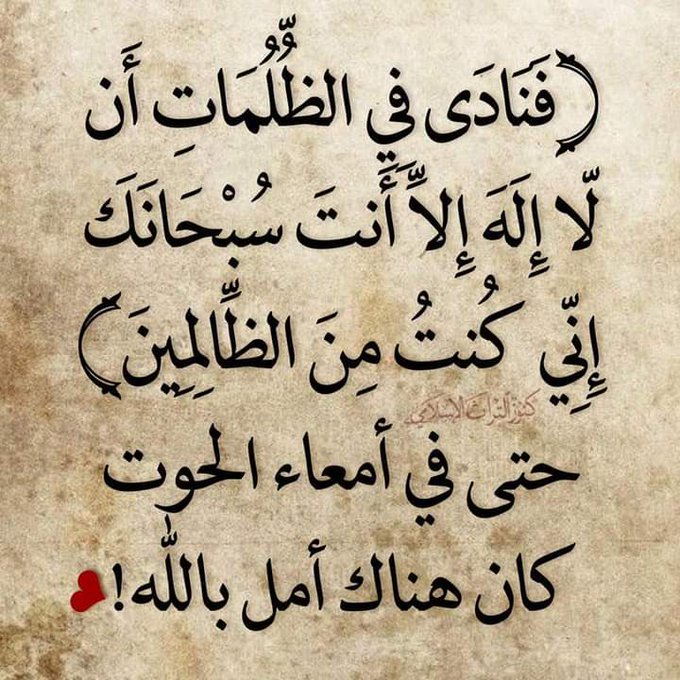 ﴿فَنَادَى فِي الظُّلُمَاتِ أَن
لَّا إِلَهَ إِلاَّ أَنتَ سُبْحَانَكَ
إِنِّي كُنتُ مِنَ الظَّالِمِينَ﴾
كنوز التراث الإسلامي
حتى في أمعاء الحوت
كان هناك أمل بالله!